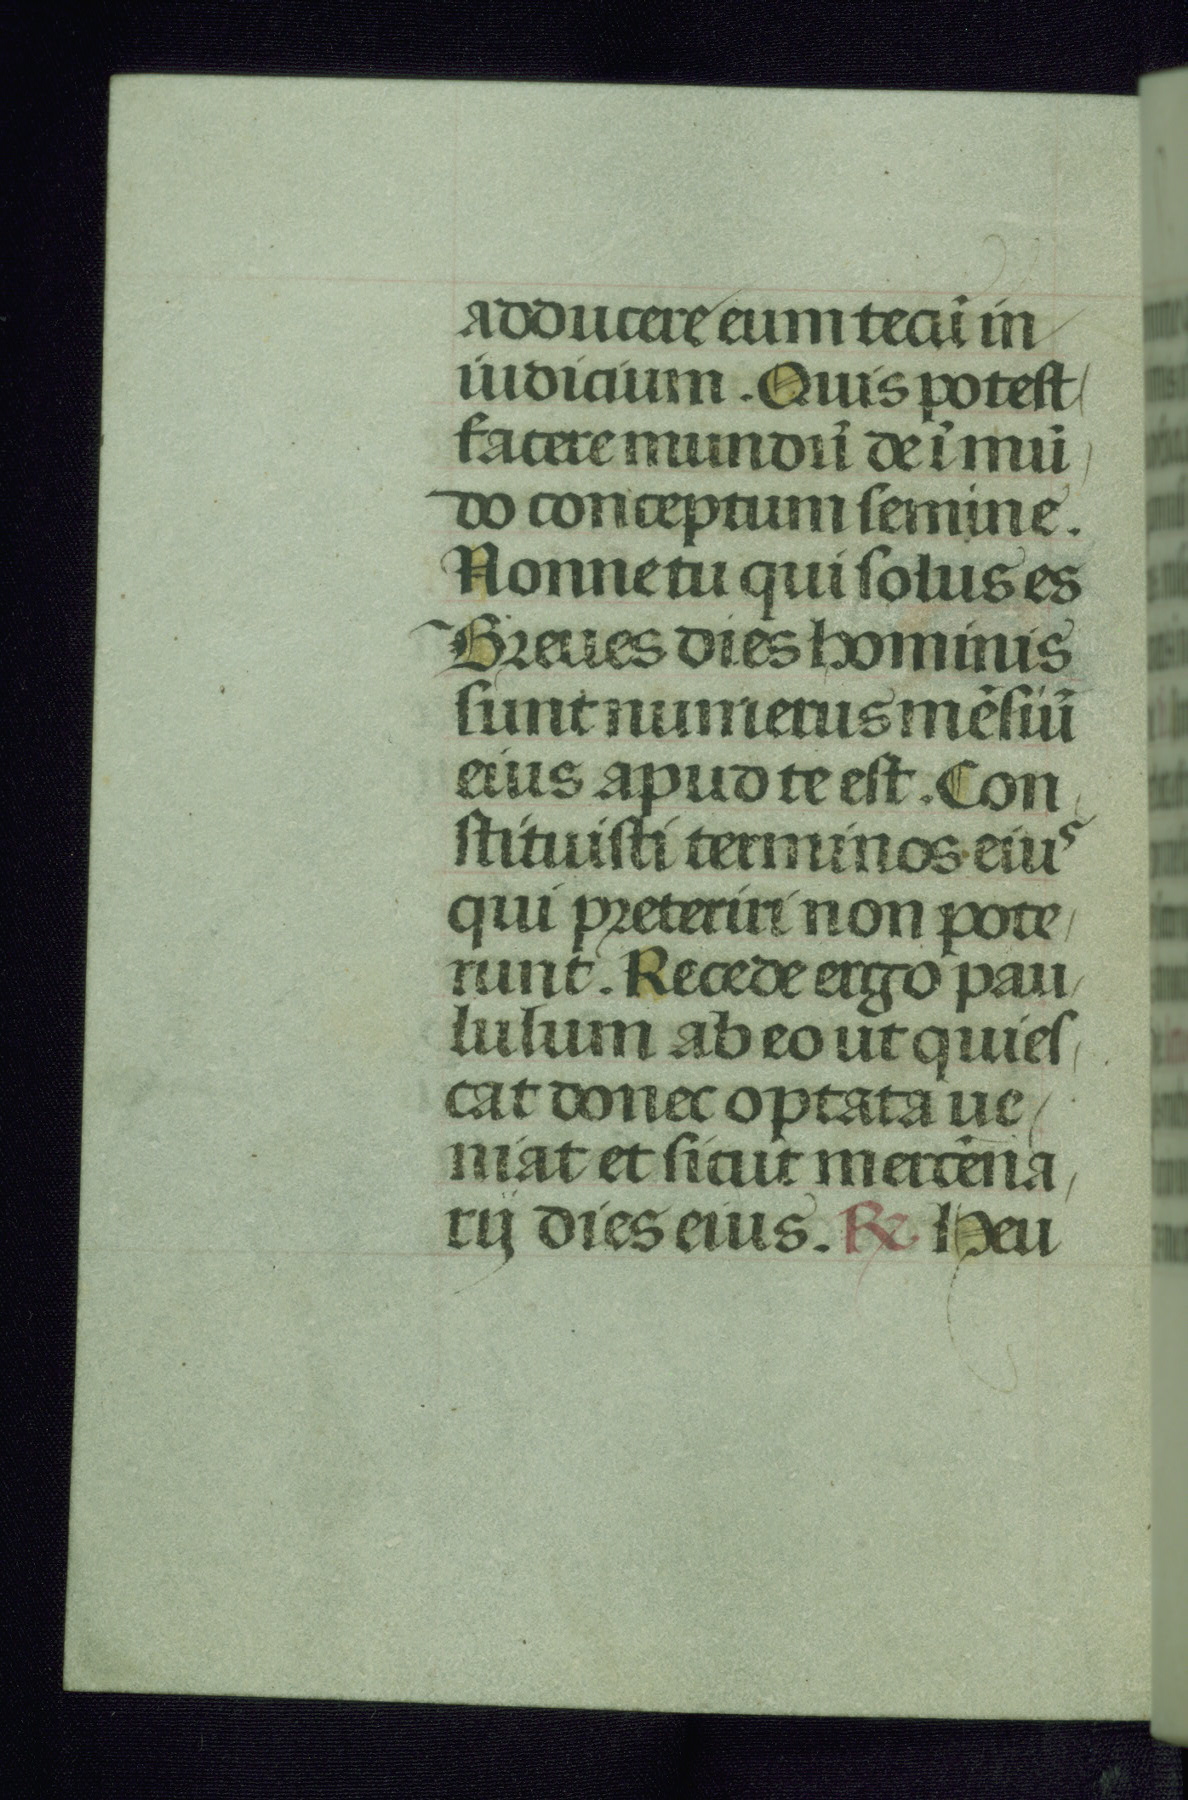 adducere eum tecū in
iudicium. Quis potest
facere mundū de īmū
do conceptum semine.
Nonne tu qui solus es
Breues dies hominis
sunt numerus mēsiū
eius apud te est. Con
stituisti terminos eius
qui preteriri non pote
runt. Recede ergo pau
lulum ab eo ut quies
cat donec optata ue
niat et sicut mercēna
rij dies eius. ℟ Heu